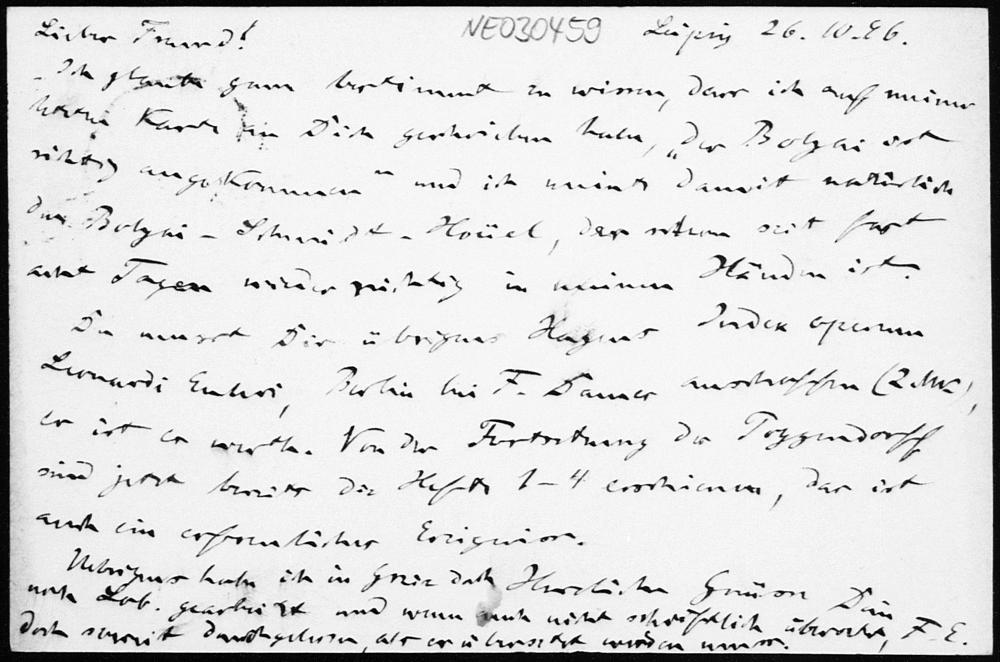 NEO30459
Lieber Freund! Leipzig 26. 10. 96.
Ich glaubte ganz bestimmt zu wissen, dass ich auf meiner
letzten Karte an Dich geschrieben habe, „der Bolyai ist
richtig angekommen" und ich meinte damit natürlich
den Bolyai-Schmidt-Hoüel, der schon seit fast
acht Tagen wieder richtig in meinen Händen ist.
Du musst Dir übrigens Hagens Index operum
Leonardi Euleri, Berlin bei F. Dames anschaffen (2 Mk),
er ist es werth. Von der Fortsetzung des Poggendorff
sind jetzt bereits die Hefte 1-4 erschienen, das ist
auch ein erfreuliches Ereigniss.
Uebrigens habe ich in Herzliche Grüsse Dein
noch Lob. gearbeitet und wenn auch nicht schriftlich übersetzt, F. E.
doch soweit durchgelesen, als er übersetzt werden muss.